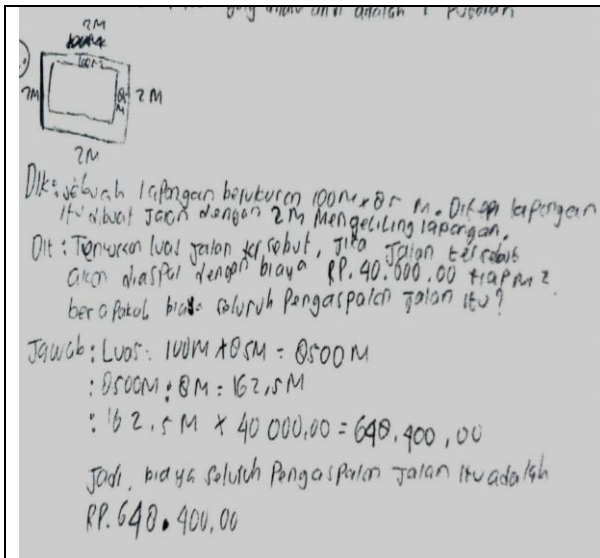 yang adalah 1 putaran
2M
100M
2M
85 M
2M
2M
Dik: sebuah lapangan berukuran 100M x 85 M. Ditepi lapangan
itu dibuat Jalan dengan 2M Mengeliling lapangan.
Dit: Tentukan luas jalan tersebut, Jika Jalan tersebut
akan diaspal dengan biaya RP. 40.000.00 tiap M2
berapakah biaya seluruh Pengaspalan Jalan itu?
Jawab: Luas: 100M x 85M = 8500M
: 8500M : 8M = 162,5M
: 162,5M x 40 000,00 = 648.400,00
Jadi, biaya seluruh Pengaspalan Jalan itu adalah
RP. 648.400,00